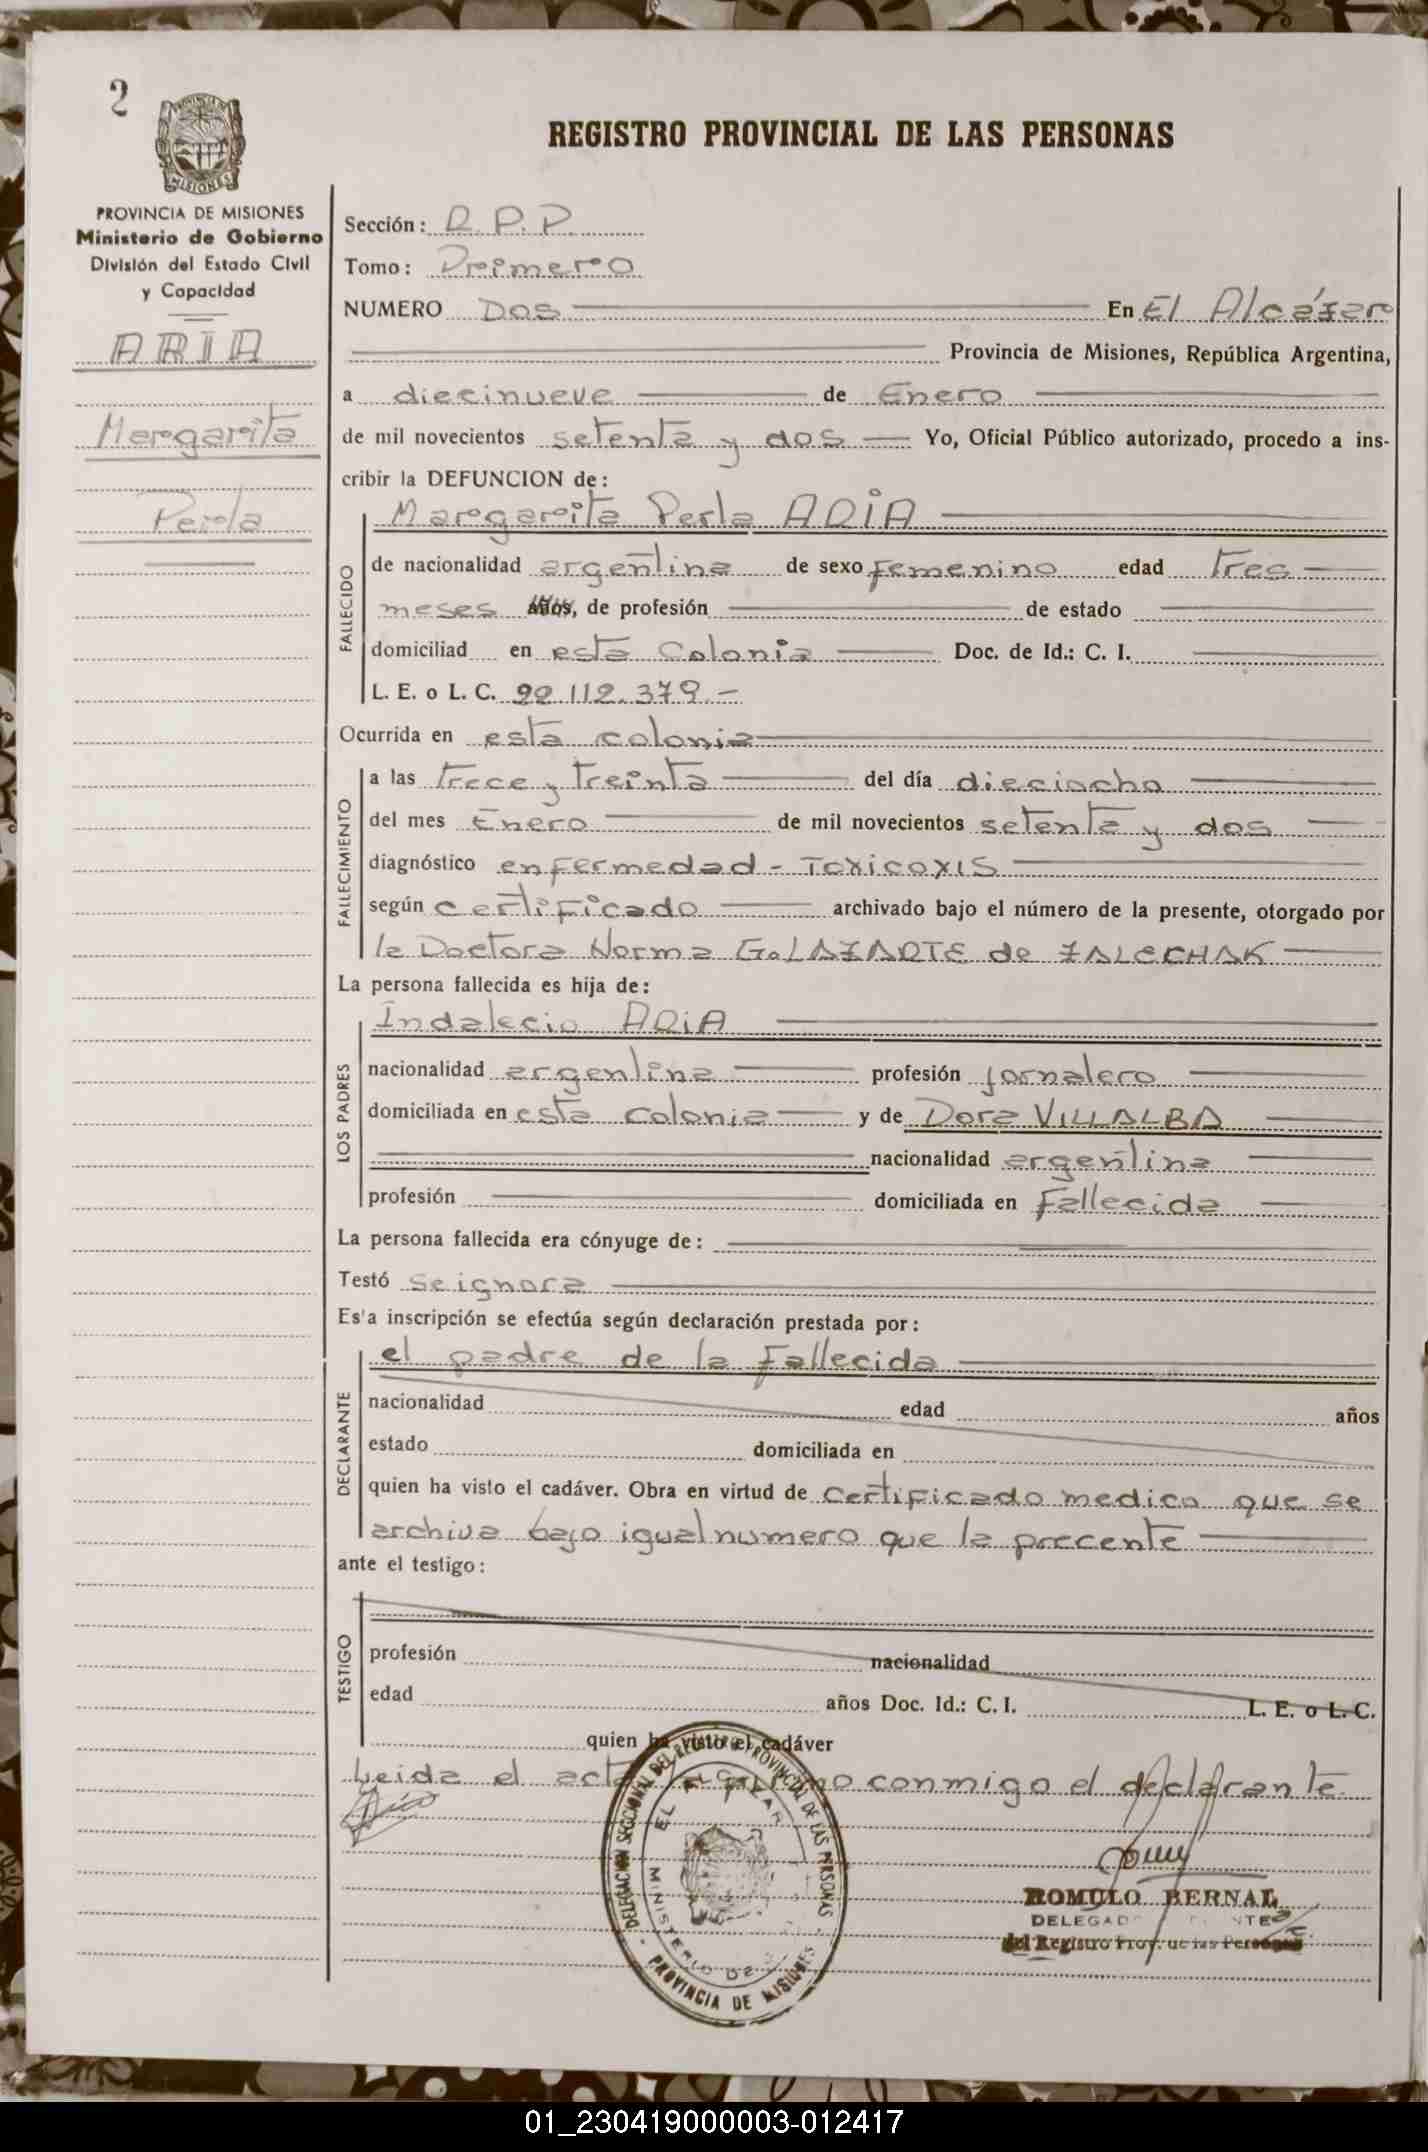 2
REGISTRO PROVINCIAL DE LAS PERSONAS
PROVINCIA DE MISIONES
Ministerio de Gobierno
División del Estado Civil
y Capacidad
ARIA
Margarita
Perla
Sección: R.P.P.
Tomo: Primero
NUMERO Dos En El Alcázar
Provincia de Misiones, República Argentina,
a diecinueve de Enero
de mil novecientos setenta y dos Yo, Oficial Público autorizado, procedo a ins-
cribir la DEFUNCION de:
Margarita Perla ARIA
FALLECIDO
de nacionalidad argentina de sexo femenino edad Tres
meses años, de profesión de estado
domiciliad en esta Colonia Doc. de Id.: C. I.
L. E. o L. C. 22.112.379.-
Ocurrida en esta colonia
FALLECIMIENTO
a las Trece y Treinta del día dieciocho
del mes Enero de mil novecientos setenta y dos
diagnóstico enfermedad - Toxicoxis
según certificado archivado bajo el número de la presente, otorgado por
la Doctora Norma G. LAZARTE de ZALECHAK
La persona fallecida es hija de:
LOS PADRES
Indalecio ARIA
nacionalidad argentina profesión jornalero
domiciliada en esta colonia y de Dora VILLALBA
nacionalidad argentina
profesión domiciliada en Fallecida
La persona fallecida era cónyuge de:
Testó se ignora
Es'a inscripción se efectúa según declaración prestada por:
DECLARANTE
el padre de la Fallecida
nacionalidad edad años
estado domiciliada en
quien ha visto el cadáver. Obra en virtud de certificado medico que se
archiva bajo igual numero que la precente
ante el testigo:
TESTIGO
profesión nacionalidad
edad años Doc. Id.: C. I. L. E. o L. C.
quien ha visto el cadáver
Leida el acta conmigo el declarante.
DELEGACION SECCIONAL DEL REGISTRO PROVINCIAL DE LAS PERSONAS
EL ALCAZAR
MINISTERIO DE
PROVINCIA DE MISIONES
ROMULO BERNAL
del Registro Prov. de las Personas
01_230419000003-012417